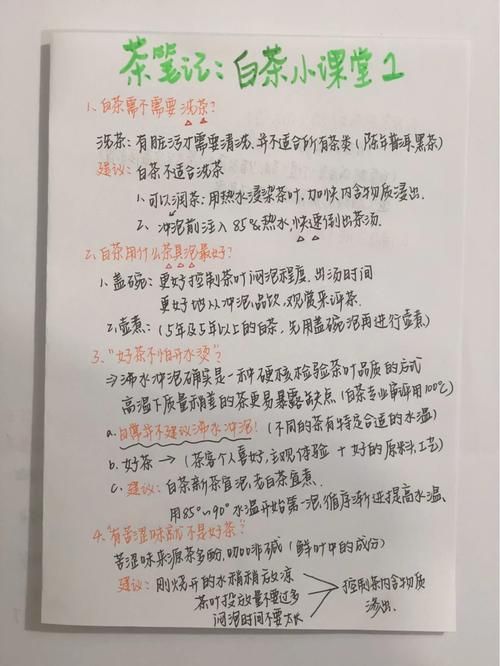 茶笔记：白茶小课堂1
1、白茶需不需要洗茶？
洗茶：有脏污才需要清洗，并不适合所有茶类（陈年普洱、黑茶）
建议：白茶不适合洗茶
1、可以润茶：用热水浸染茶叶，加快内含物质浸出。
2、冲泡前注入85%热水，快速倒出茶汤。
2、白茶用什么茶具泡最好？
1、盖碗：更好控制茶叶闷泡程度、出汤时间
更好地从冲泡、品饮，观赏来评茶。
2、壶煮：（5年及5年以上的白茶，先用盖碗泡再进行壶煮）
3、“好茶不怕开水烫”？
⇒沸水冲泡确实是一种硬核检验茶叶品质的方式
高温下质量稍差的茶更易暴露缺点（白茶专业审评用100℃）
a.日常并不建议沸水冲泡！（不同的茶有特定合适的水温）
b.好茶→（茶客个人喜好，主观体验+好的原料、工艺）
c.建议：白茶新茶宜泡，老白茶宜煮。
用85°~90°水温开始第一泡，循序渐进提高水温、
4、“有苦涩味就不是好茶”？
苦涩味来源茶多酚，咖啡碱（鲜叶中的成份）
建议：刚烧开的水稍稍放凉
茶叶投放量不要过多
闷泡时间不要太长
控制茶内含物质
渗出.